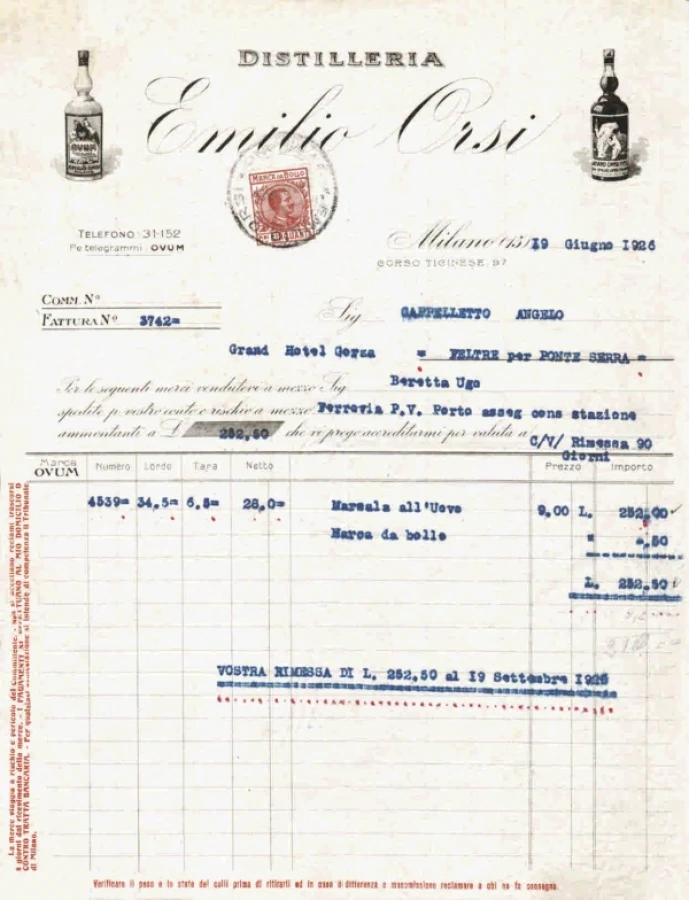 DISTILLERIA
Emilio Orsi
OVUM
MARCA DA BOLLO
TELEFONO 31-152
Pe telegrammi: OVUM
Milano (13) 19 Giugno 1926
CORSO TICINESE, 97
COMM. Nº
FATTURA Nº 3742=
Sig CAPPELLETTO ANGELO
Grand Hotel Gorza = FELTRE per PONTE SERRA =
Per le seguenti merci vendutevi a mezzo Sig Beretta Ugo
spedite p. vostro conto e rischio a mezzo Ferrovia P.V. Porto asseg cons stazione
ammontanti a L 252,50 che vi prego accreditarmi per valuta a C/V/ Rimessa 90
Giorni
Marca OVUM Numero Lordo Tara Netto Prezzo Importo
4539= 34,5= 6,5= 28,0= Marsala all'Uovo 9,00 L. 252,00
Marca da bollo " -,50
L. 252,50
VOSTRA RIMESSA DI L. 252,50 al 19 Settembre 1926
La merce viaggia a rischio e pericolo del Committente. - Non si accettano reclami trascorsi
8 giorni dal ricevimento della merce. - I PAGAMENTI SI EFFETTUANO AL MIO DOMICILIO O
CONTRO TRATTA BANCARIA. - Per qualsiasi contestazione si intende di competenza il Tribunale
di Milano.
Verificare il peso e lo stato dei colli prima di ritirarli ed in caso di differenza o manomissione reclamare a chi ne fa consegna.